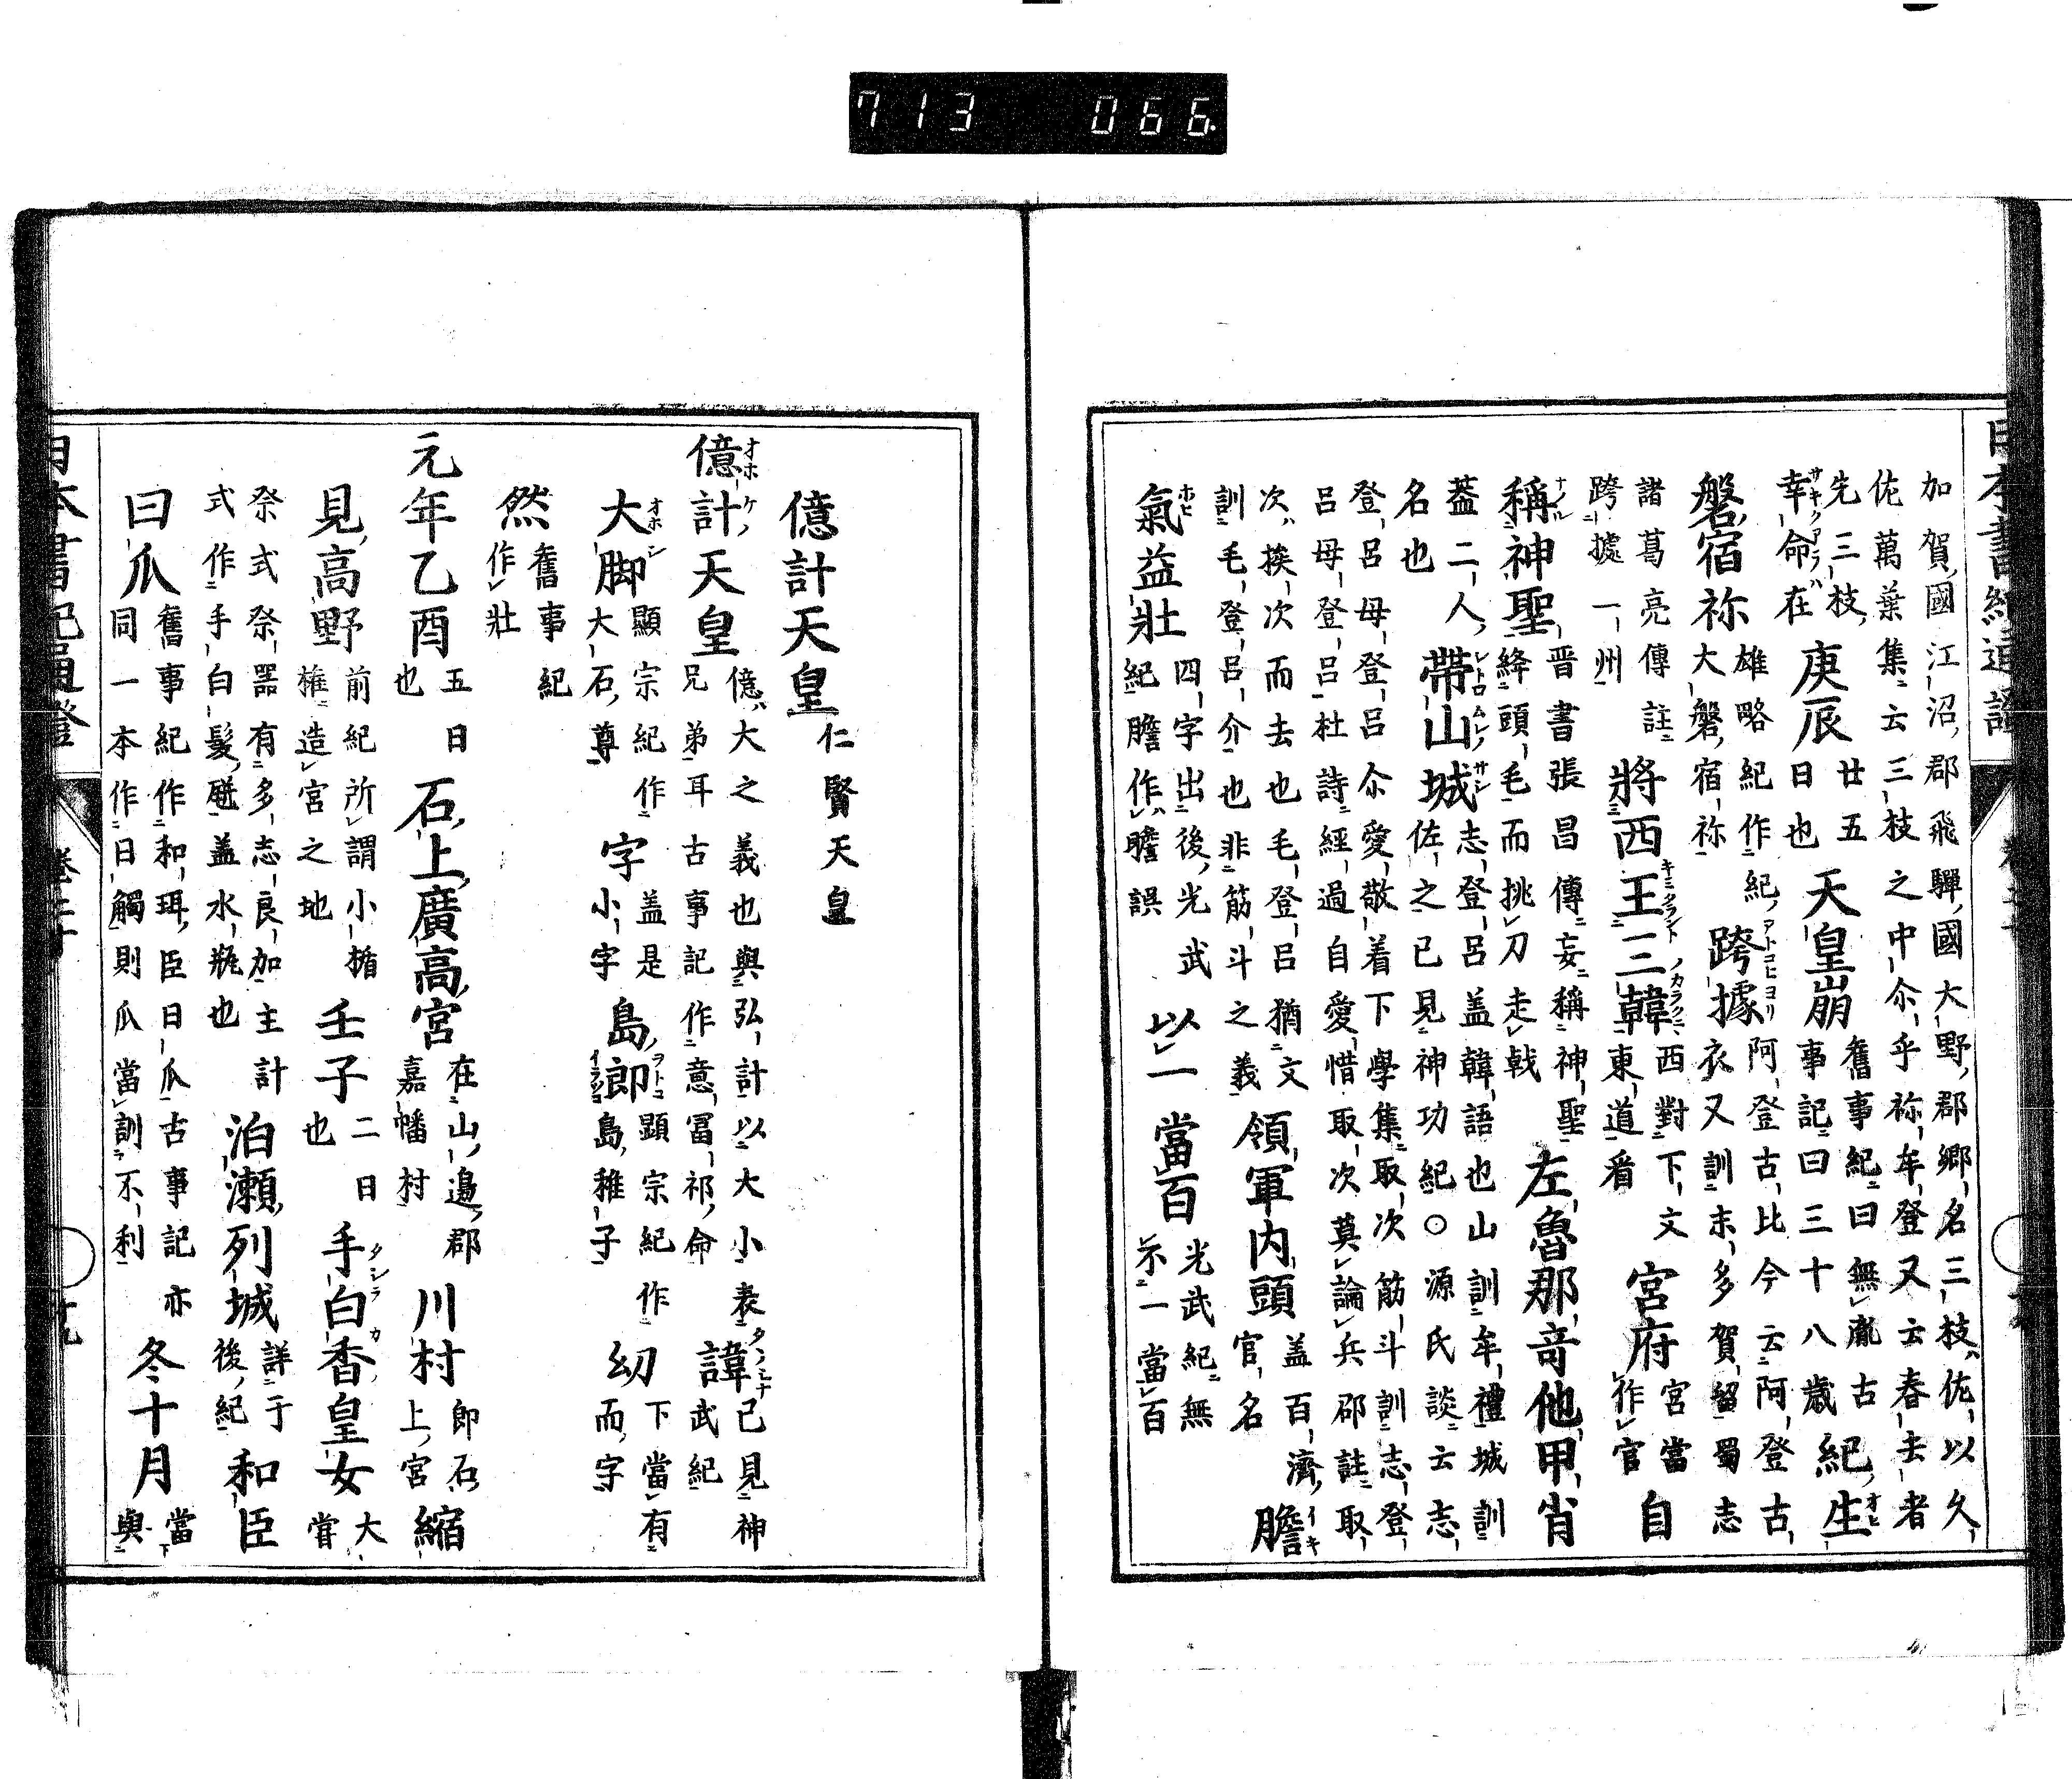 713 066
加賀國江沼郡飛驒國大野郡郷名三枝佐以久
佐萬葉集云三枝之中尒乎祢牟登又云春去者
先三枝幸命在 庚辰 廿五日也 天皇崩 舊事紀曰無胤古事記曰三十八歲 紀生
磐宿祢 雄略紀作紀大磐宿祢 跨據 阿登古比今云阿登古衣又訓末多賀留蜀志
諸葛亮傳註跨據一州 將西王三韓 西對下文東道看 宮府 宮當作官 自
稱神聖 晋書張昌傳妄稱神聖絳頭毛而挑刀走戟 左魯那奇他甲肖
蓋二人名也 帶山城 志登呂盖韓語也山訓牟禮城訓佐之已見神功紀○源氏談云志
登呂母登呂尒愛敬着下學集取次筋斗訓志登
呂母登呂杜詩經過自愛惜取次莫論兵邵註取
次挨次而去也毛登呂猶文
訓毛登呂介也非筋斗之義 領軍内頭 盖百濟官名 膽
氣益壯 四字出後光武紀膽作瞻誤 以一當百 光武紀無不一當百
億計天皇 仁賢天皇
億計天皇 億大之義也與弘計以大小表兄弟耳古事記作意冨祁命 諱 已見神武紀
大脚 顯宗紀作大石尊 字 盖是小字 島郎 顕宗紀作島稚子 幼 下當有而字
然 舊事紀作壯
元年乙酉 五日也 石上廣高宮 在山邉郡嘉幡村 川村 即石上宮 縮
見高野 前紀所謂小楯權造宮之地 壬子 二日也 手白香皇女 大嘗
祭式祭器有多志良加主計式作手白髮瓼盖水瓶也 泊瀬列城 詳于後紀 和臣
曰爪 舊事紀作和珥臣日爪古事記亦同一本作日觸則爪當訓不利 冬十月 當與